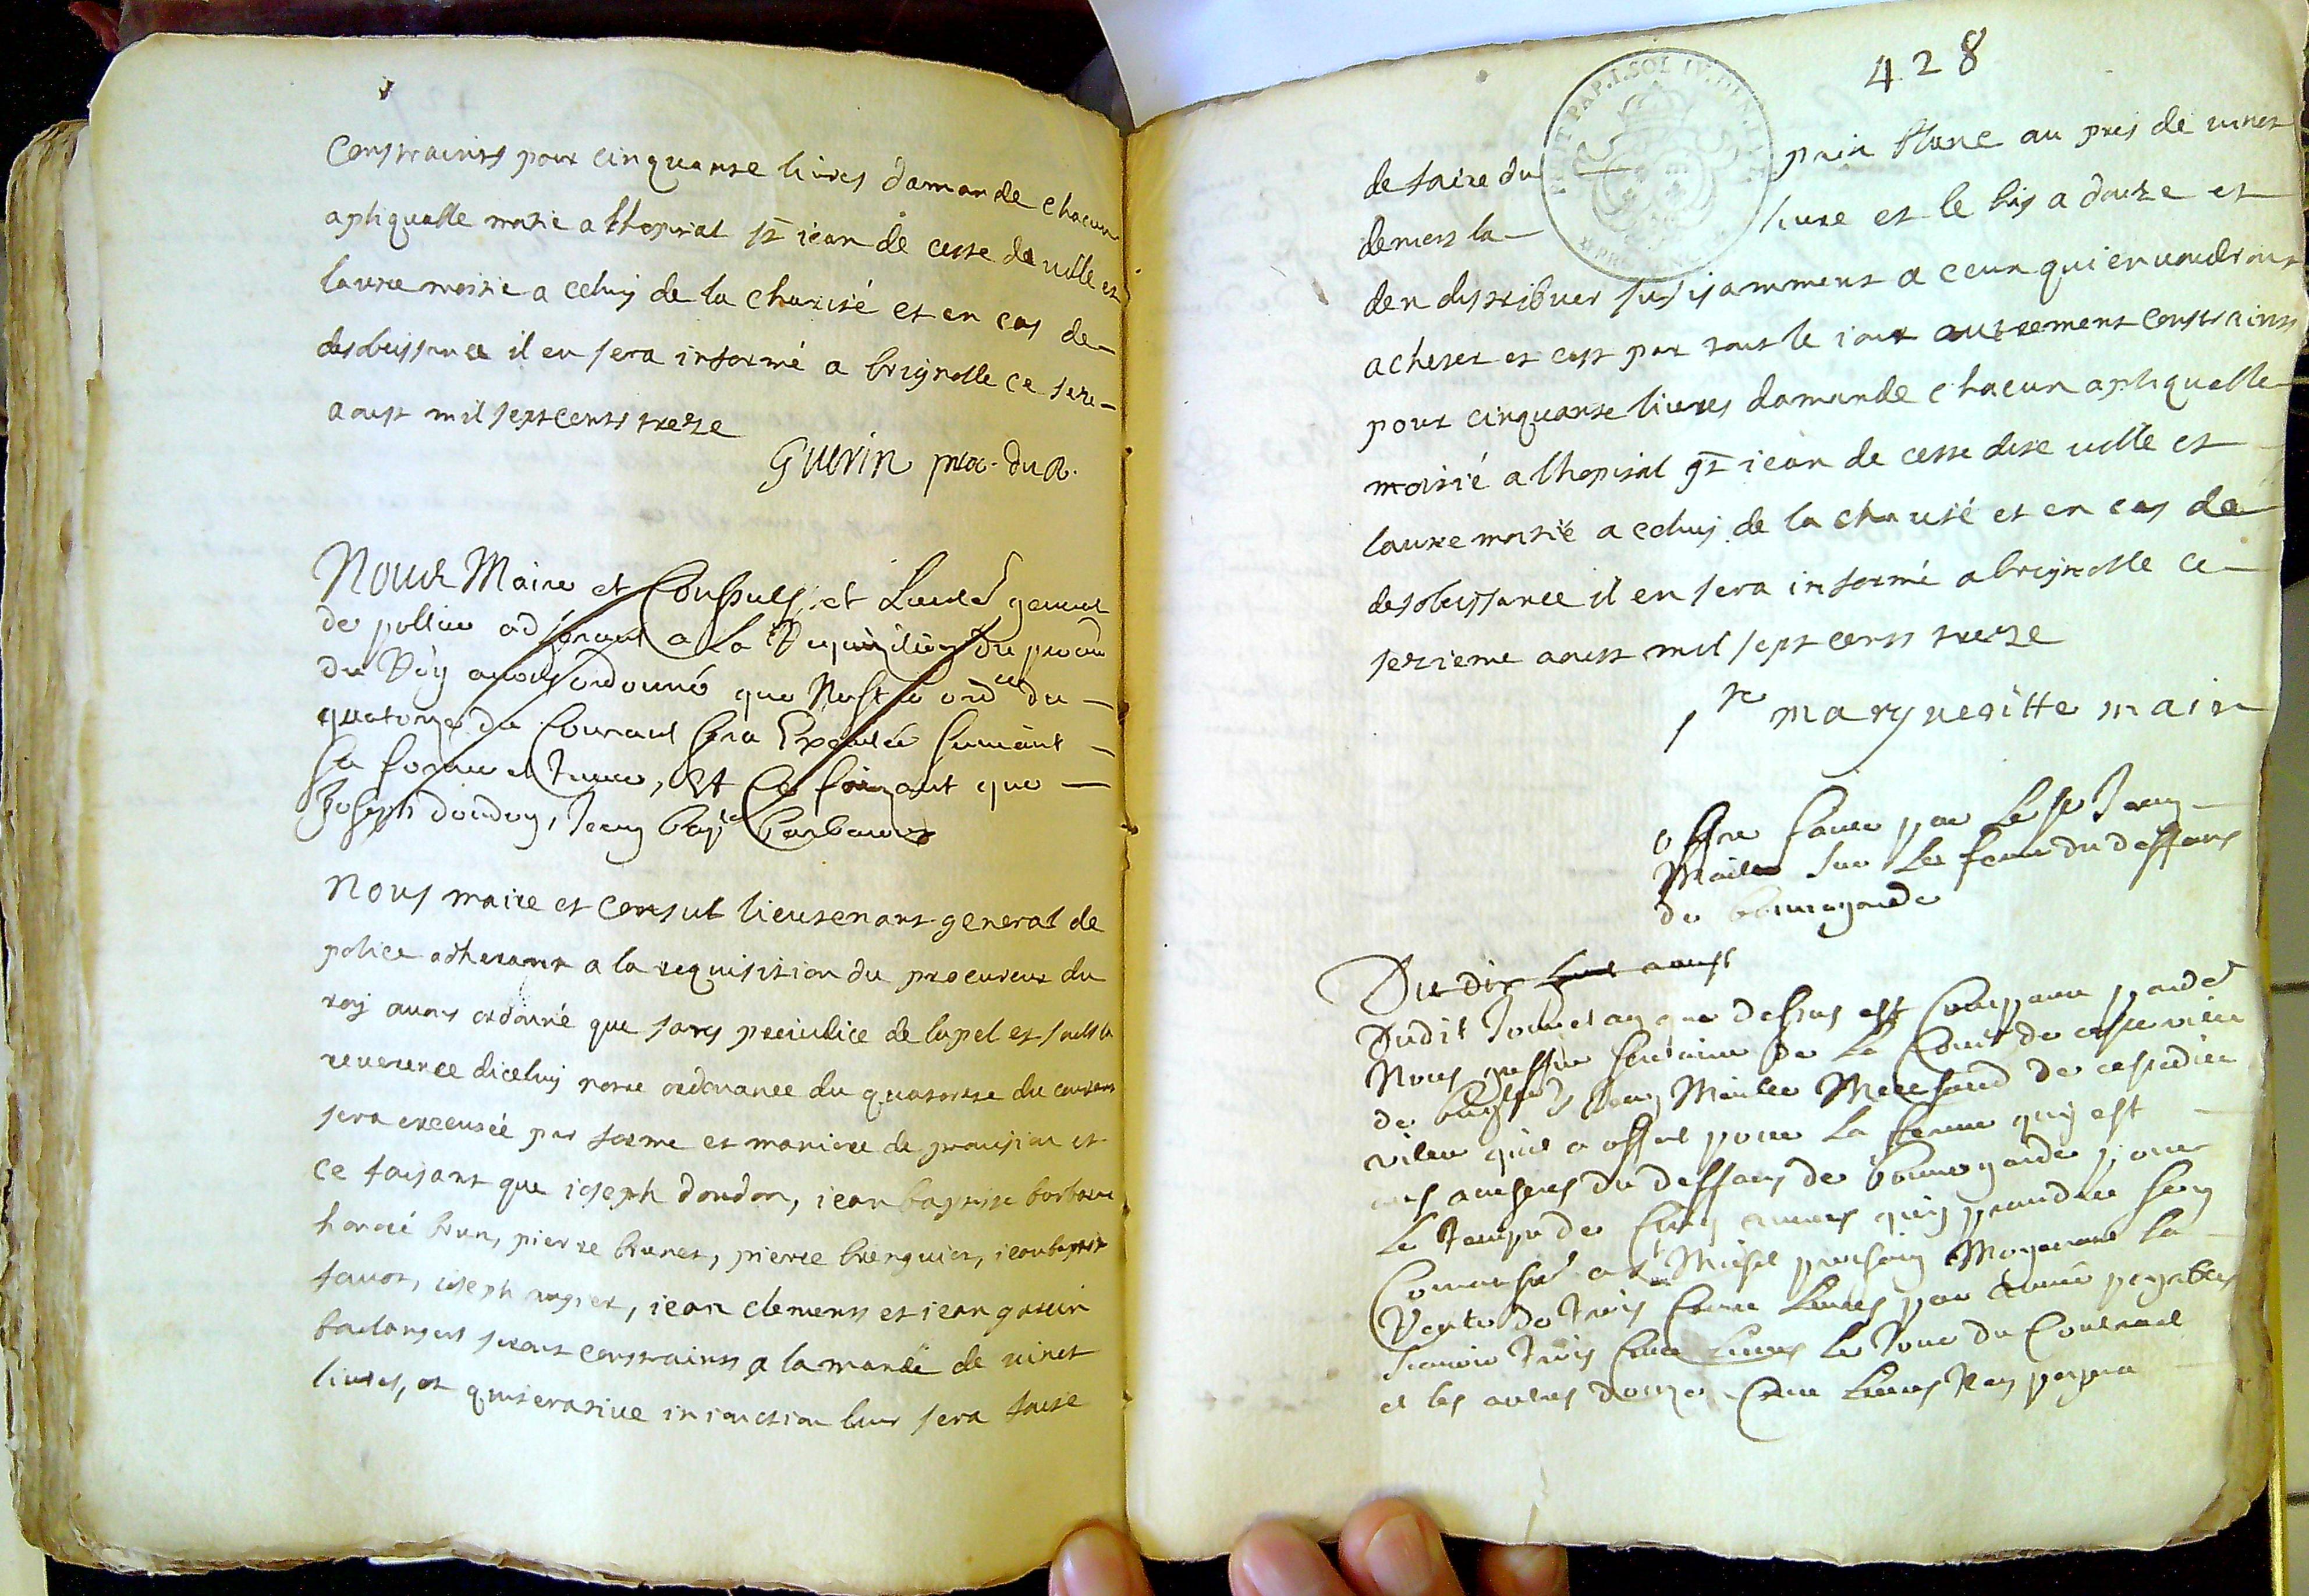 constraints pour cinquante livres damande chacun
apliquable motié a lhopital st iean de cette de ville et
lautre moitié a celuy de la charité et en cas de
desobeissance il en sera informé a brignolle ce seze
aoust mil sept cents treze
Guerin proc. du R.
Nous Maire et Consuls et Lieut gnral
de pollice adherant a la Requisition du procur
du Roy avons ordonné que Nostre ordce du
quatorze du Courant sera Exécutée suivant
sa forme et teneur, Et Ce faizant que
Joseph doudon, Jean bapte barbaroux
Nous maire et consul lieutenant general de
police adherant a la requisition du procureur du
roy avons ordonné que sans preiudice de lapel et sauf la
reverence diceluy notre ordonance du quatorze du courant
sera executée par forme et maniere de provision et
ce faisant que ioseph doudon, iean baptiste barbaroux
honoré brun, pierre brunet, pierre brenguier, iean baptiste
, ioseph , iean clemens et iean gavin
boulangers seront constraints a lamande de vinct
livres, et quiterative inionction leur sera faite
428
de faire du pain blanc au pris de vinct
deniers la livre et le bis a douze et
den distribuer sufisamment a ceux qui en voudront
acheter et cest par tout le iour autrement constraints
pour cinquante livres damande chacun apliquable
moitié a lhopital st iean de cette dite ville et
lautre moitié a celuy de la charité et en cas de
desobeissance il en sera informé a brignolle ce
sezieme aoust mil sept cens treze
margueritte maire
offre faite par Le sr Jean
Maille sur La ferme du deffans
de
Du dix aoust
Dudit Jour et an que dessus est Comparu pardt
Nous greffier de La Comté de cette ville
de Jean Maille Marchand de cestedite
ville quil a offert pour La ferme quy est
aux ancheres du deffans de pour
Le temps de Cinq années quy prandra
a St Michel prochain Moyenant La
Rente de trois Cens Livres par année payables
trois Cens Livres Le Jour du Contract
et les autres douze Cens Livres